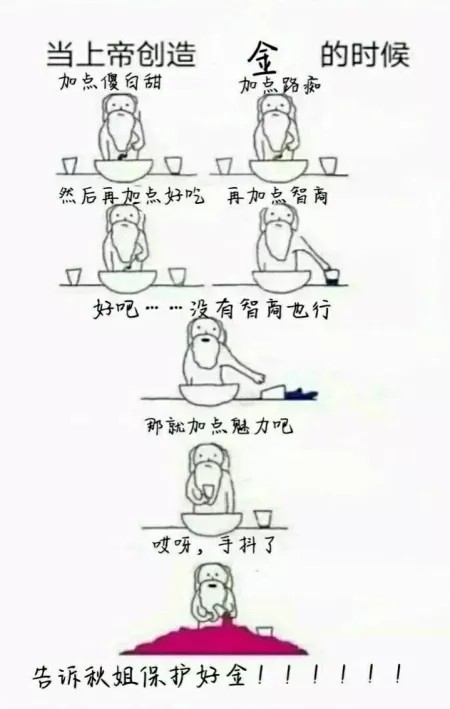 当上帝创造 金 的时候
加点傻白甜 加点路痴
然后再加点好吃 再加点智商
好吧……没有智商也行
那就加点魅力吧
哎呀，手抖了
告诉秋姐保护好金！！！！！！